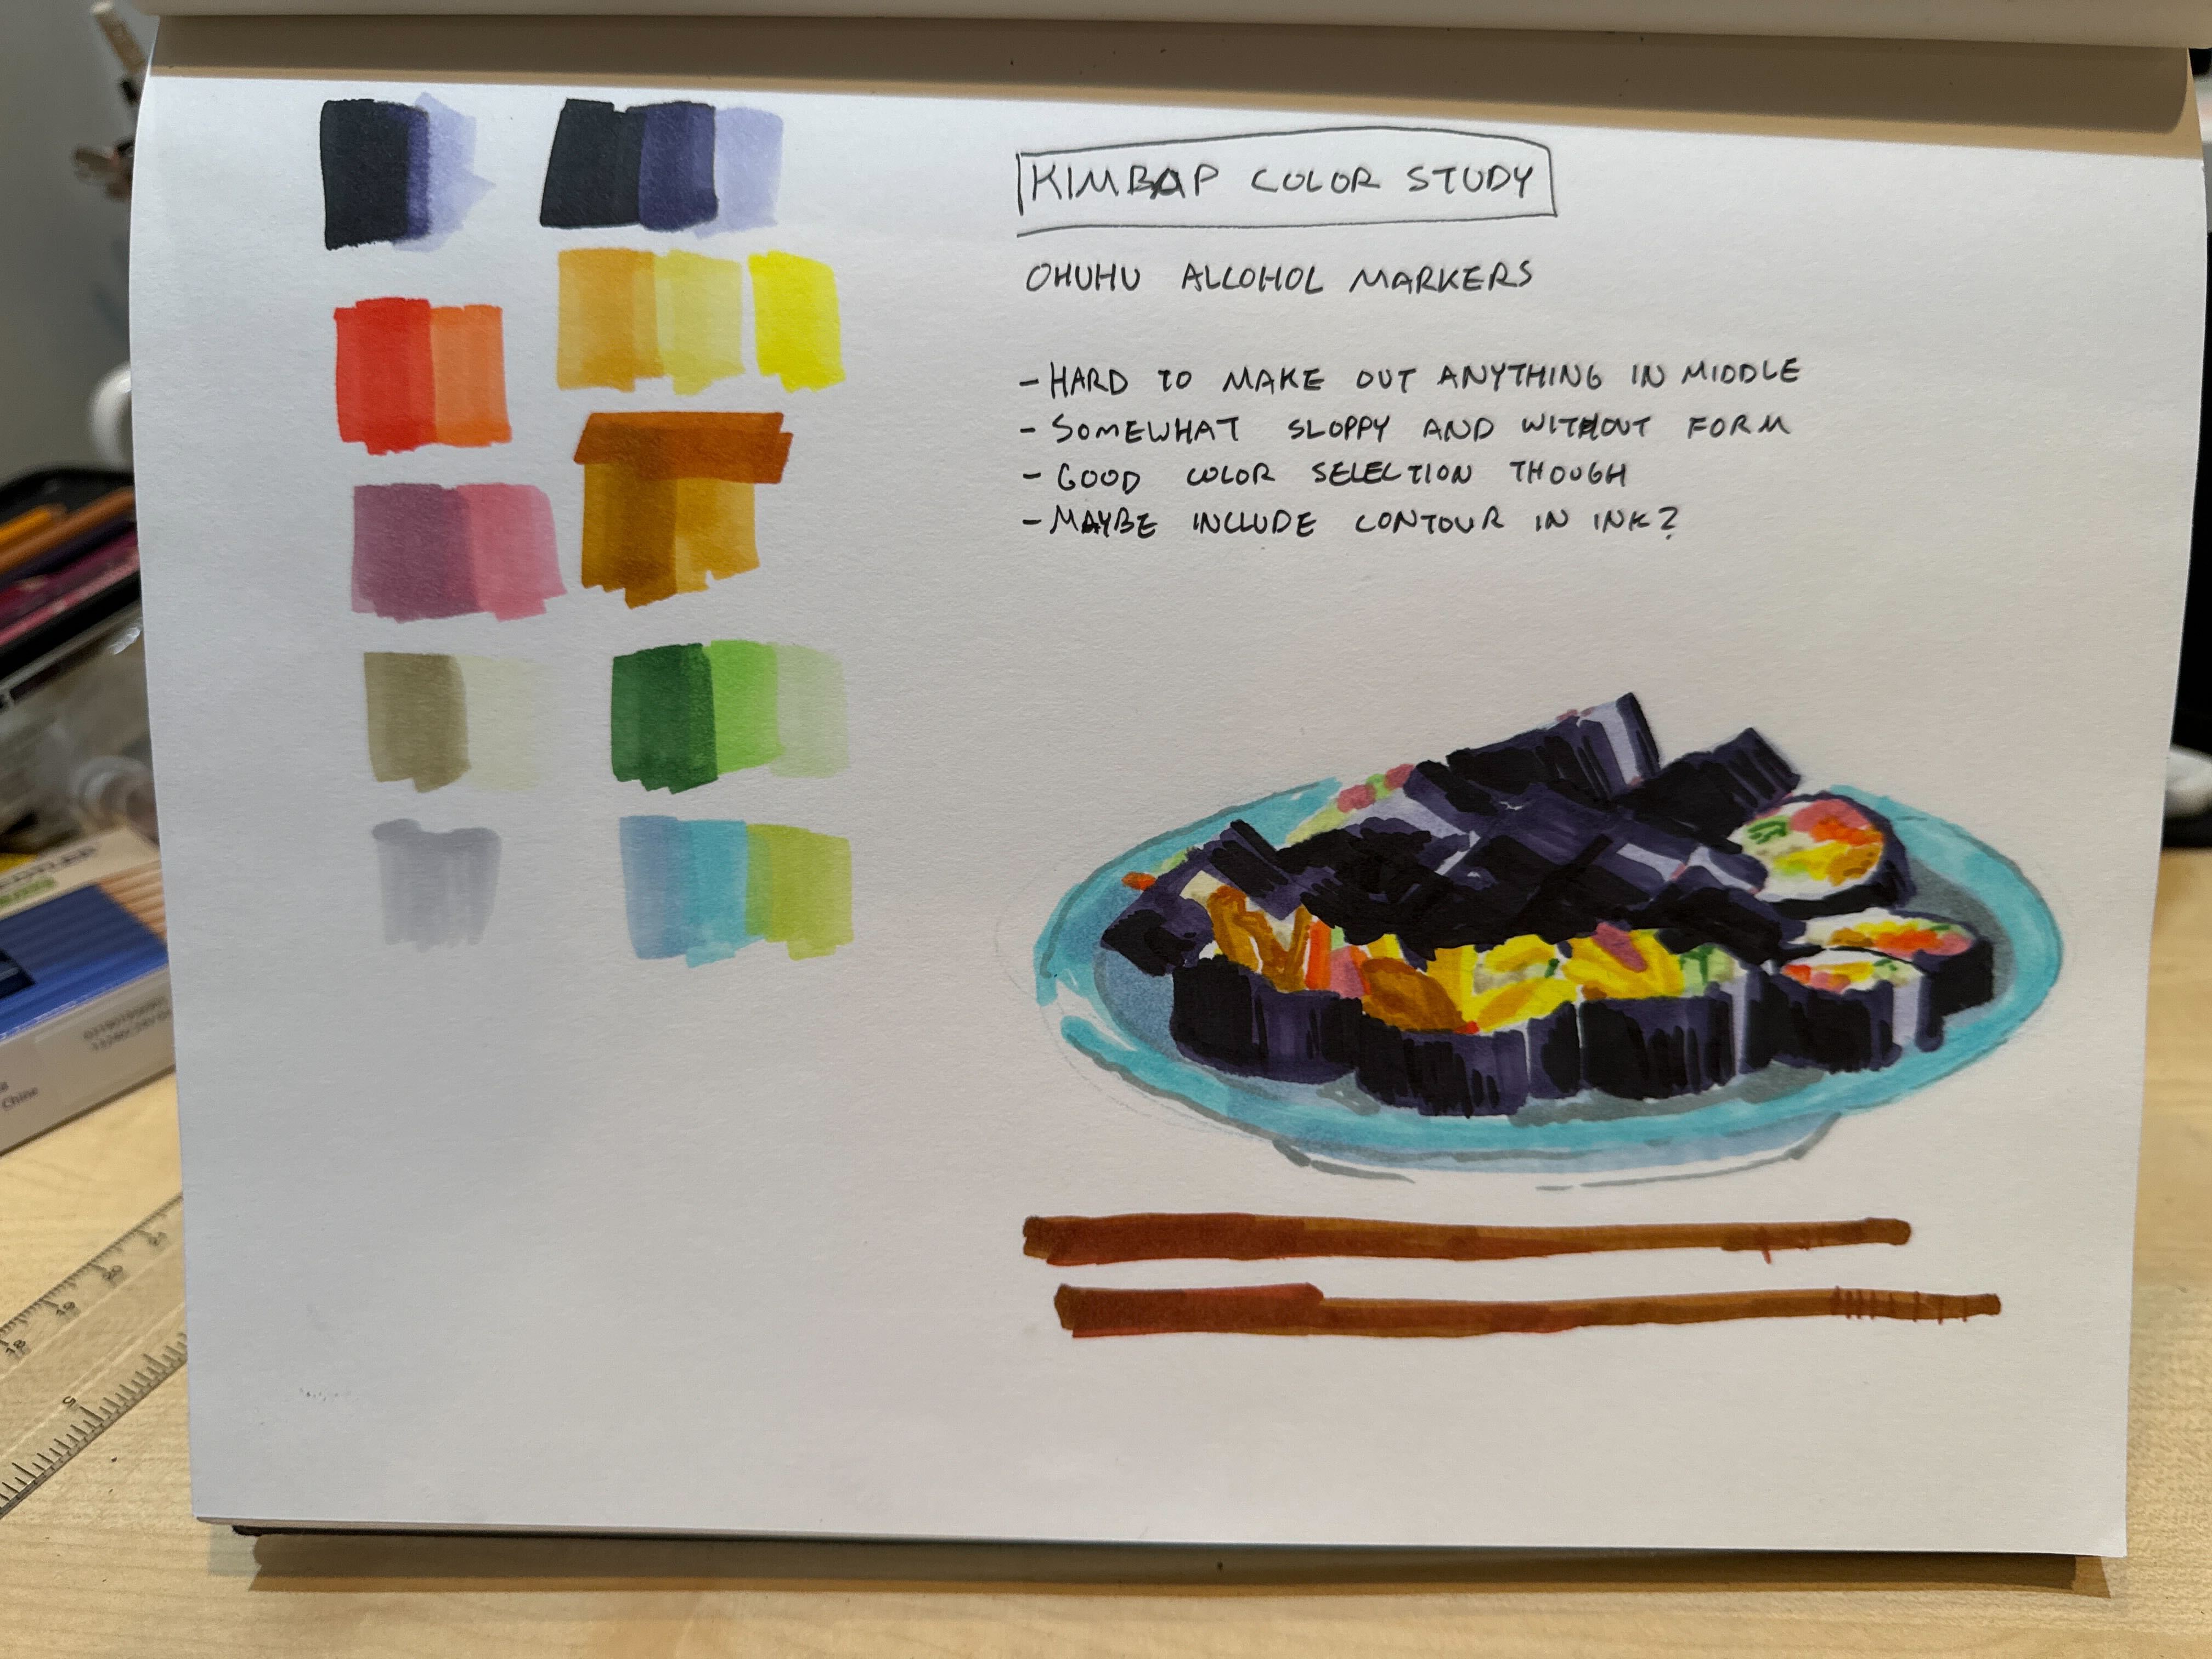 KIMBAP COLOR STUDY
OHUHU ALCOHOL MARKERS
- HARD TO MAKE OUT ANYTHING IN MIDDLE
- SOMEWHAT SLOPPY AND WITHOUT FORM
- GOOD COLOR SELECTION THOUGH
- MAYBE INCLUDE CONTOUR IN INK?
Chine
18
19
20
21
5